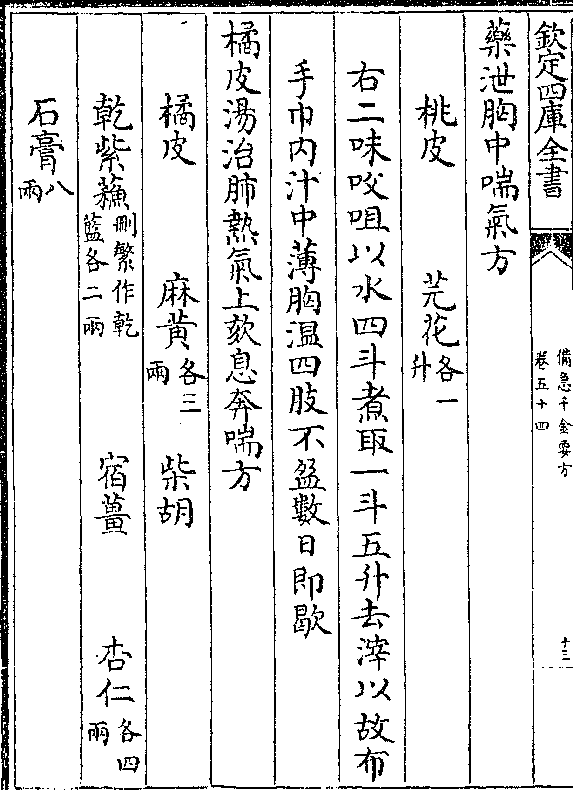 欽定四庫全書
備急千金要方
卷五十四
十三
藥泄胸中喘氣方
桃皮 芫花各一升
右二味㕮咀以水四斗煮取一斗五升去滓以故布
手巾内汁中薄胸温四肢不盈數日即歇
橘皮湯治肺熱氣上欬息奔喘方
橘皮 麻黃各三兩 柴胡
乾紫蘓刪繁作乾藍各二兩 宿薑 杏仁各四兩
石膏八兩